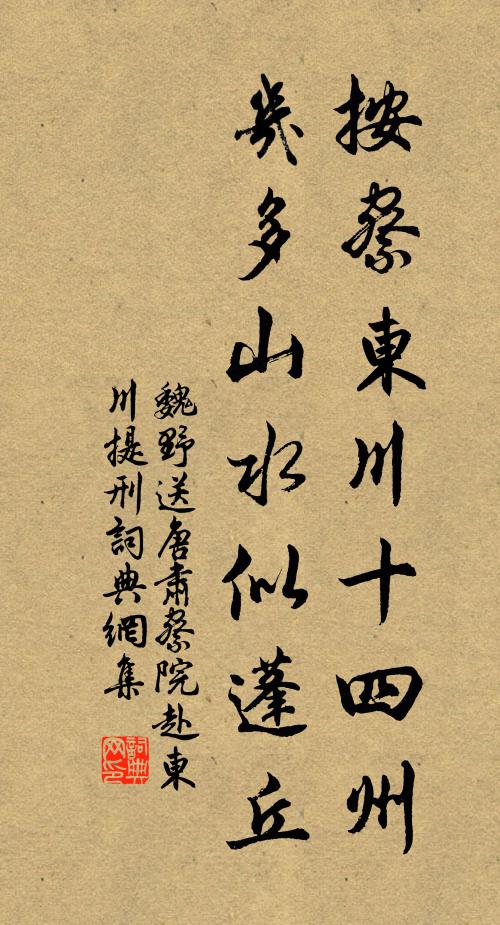 按察東川十四州
幾多山水似蓬丘
魏野送唐肅察院赴東
川提刑詞典網集
詞典
网印